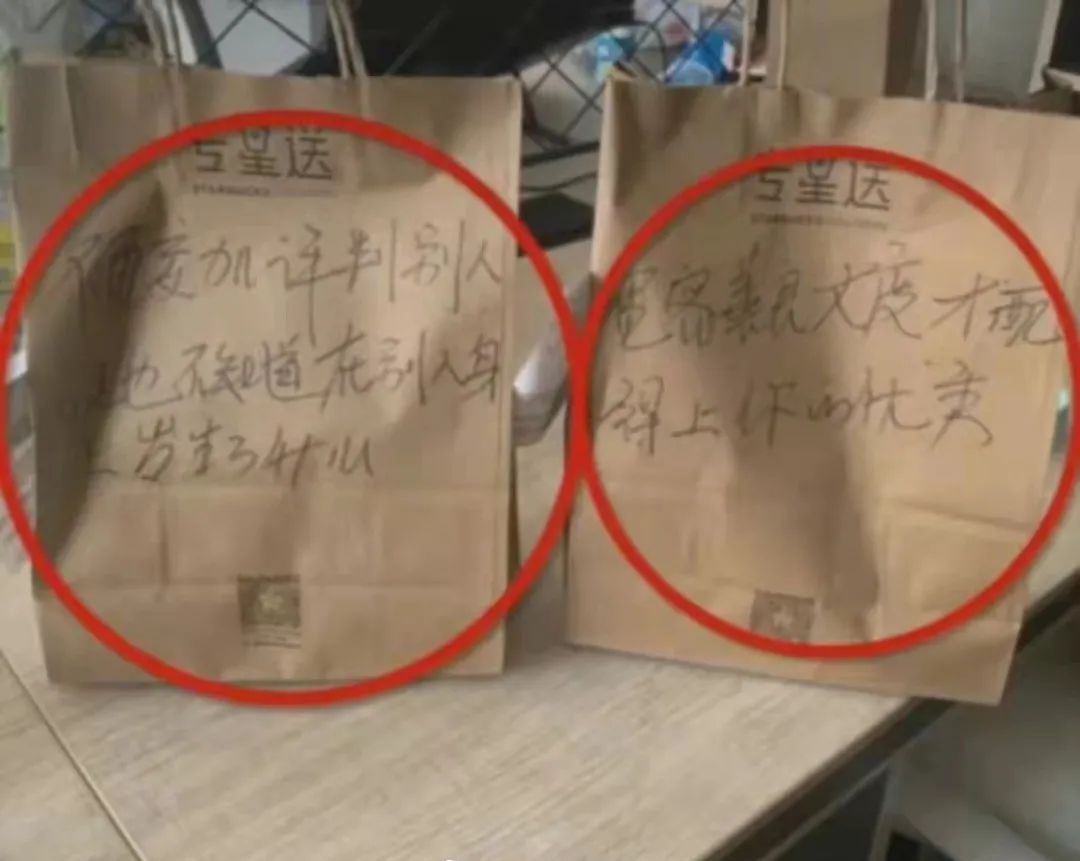 专星送
STARBUCKS
加评判别人
也不知道在别人身
上发生了什么
专星送
STARBUCKS
宽容 大度才配
得上你的优